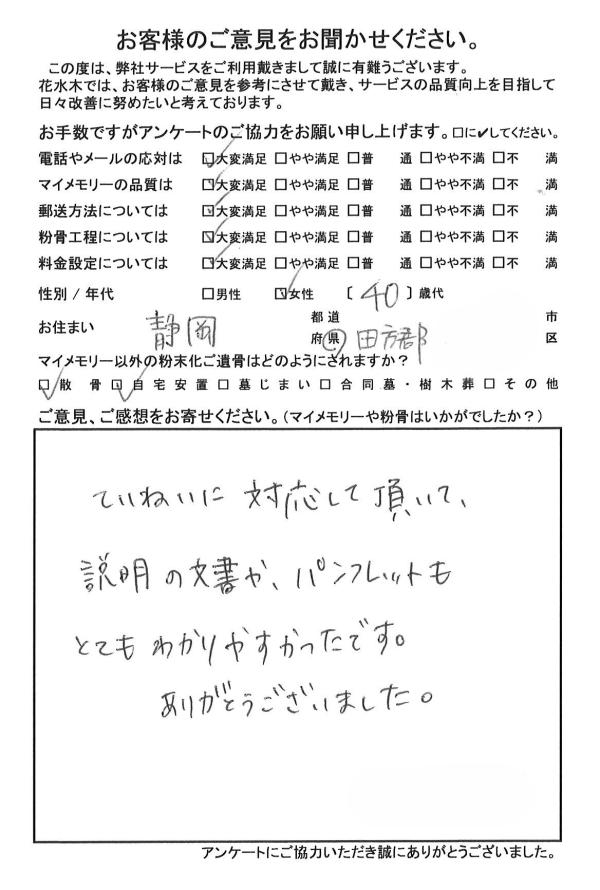 お客様のご意見をお聞かせください。
この度は、弊社サービスをご利用戴きまして誠に有難うございます。
花水木では、お客様のご意見を参考にさせて戴き、サービスの品質向上を目指して
日々改善に努めたいと考えております。
お手数ですがアンケートのご協力をお願い申し上げます。□に✔してください。
電話やメールの応対は ☑大変満足 □やや満足 □普 通 □やや不満 □不 満
マイメモリーの品質は ☑大変満足 □やや満足 □普 通 □やや不満 □不 満
郵送方法については ☑大変満足 □やや満足 □普 通 □やや不満 □不 満
粉骨工程については ☑大変満足 □やや満足 □普 通 □やや不満 □不 満
料金設定については ☑大変満足 □やや満足 □普 通 □やや不満 □不 満
性別 / 年代 □男性 ☑女性 〔 40 〕歳代
お住まい 静岡 都道府県 田方郡 市区
マイメモリー以外の粉末化ご遺骨はどのようにされますか?
☑散 骨 ☑自宅安置 □墓じまい □合同墓・樹木葬 □その他
ご意見、ご感想をお寄せください。(マイメモリーや粉骨はいかがでしたか?)
ていねいに 対応して頂いて、
説明の文書か、パンフレットも
とてもわかりやすかったです。
ありがとうございました。
アンケートにご協力いただき誠にありがとうございました。